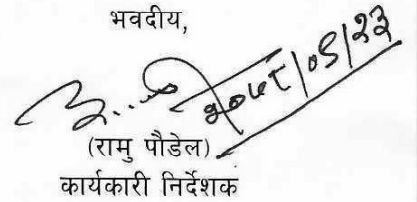 भवदीय,
२०७८/०९/२३
(रामु पौडेल)
कार्यकारी निर्देशक